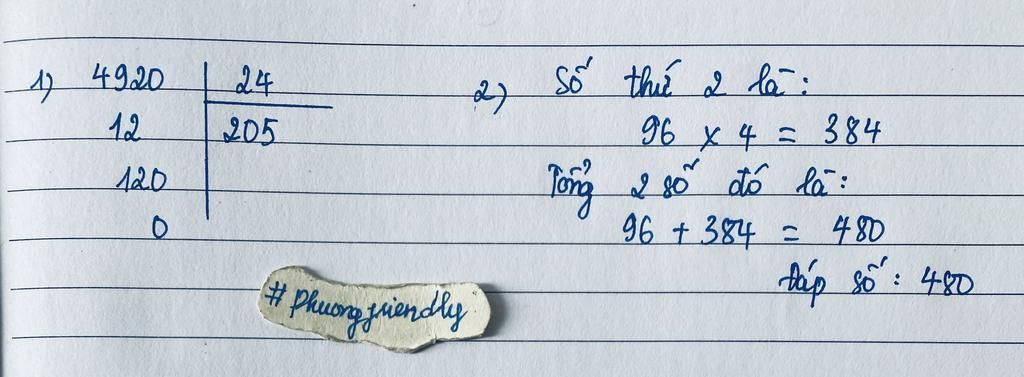 1) 4920 | 24
12 | 205
120
0
2) Số thứ 2 là:
96 x 4 = 384
Tổng 2 số đó là:
96 + 384 = 480
Đáp số: 480
#phuongfriendly